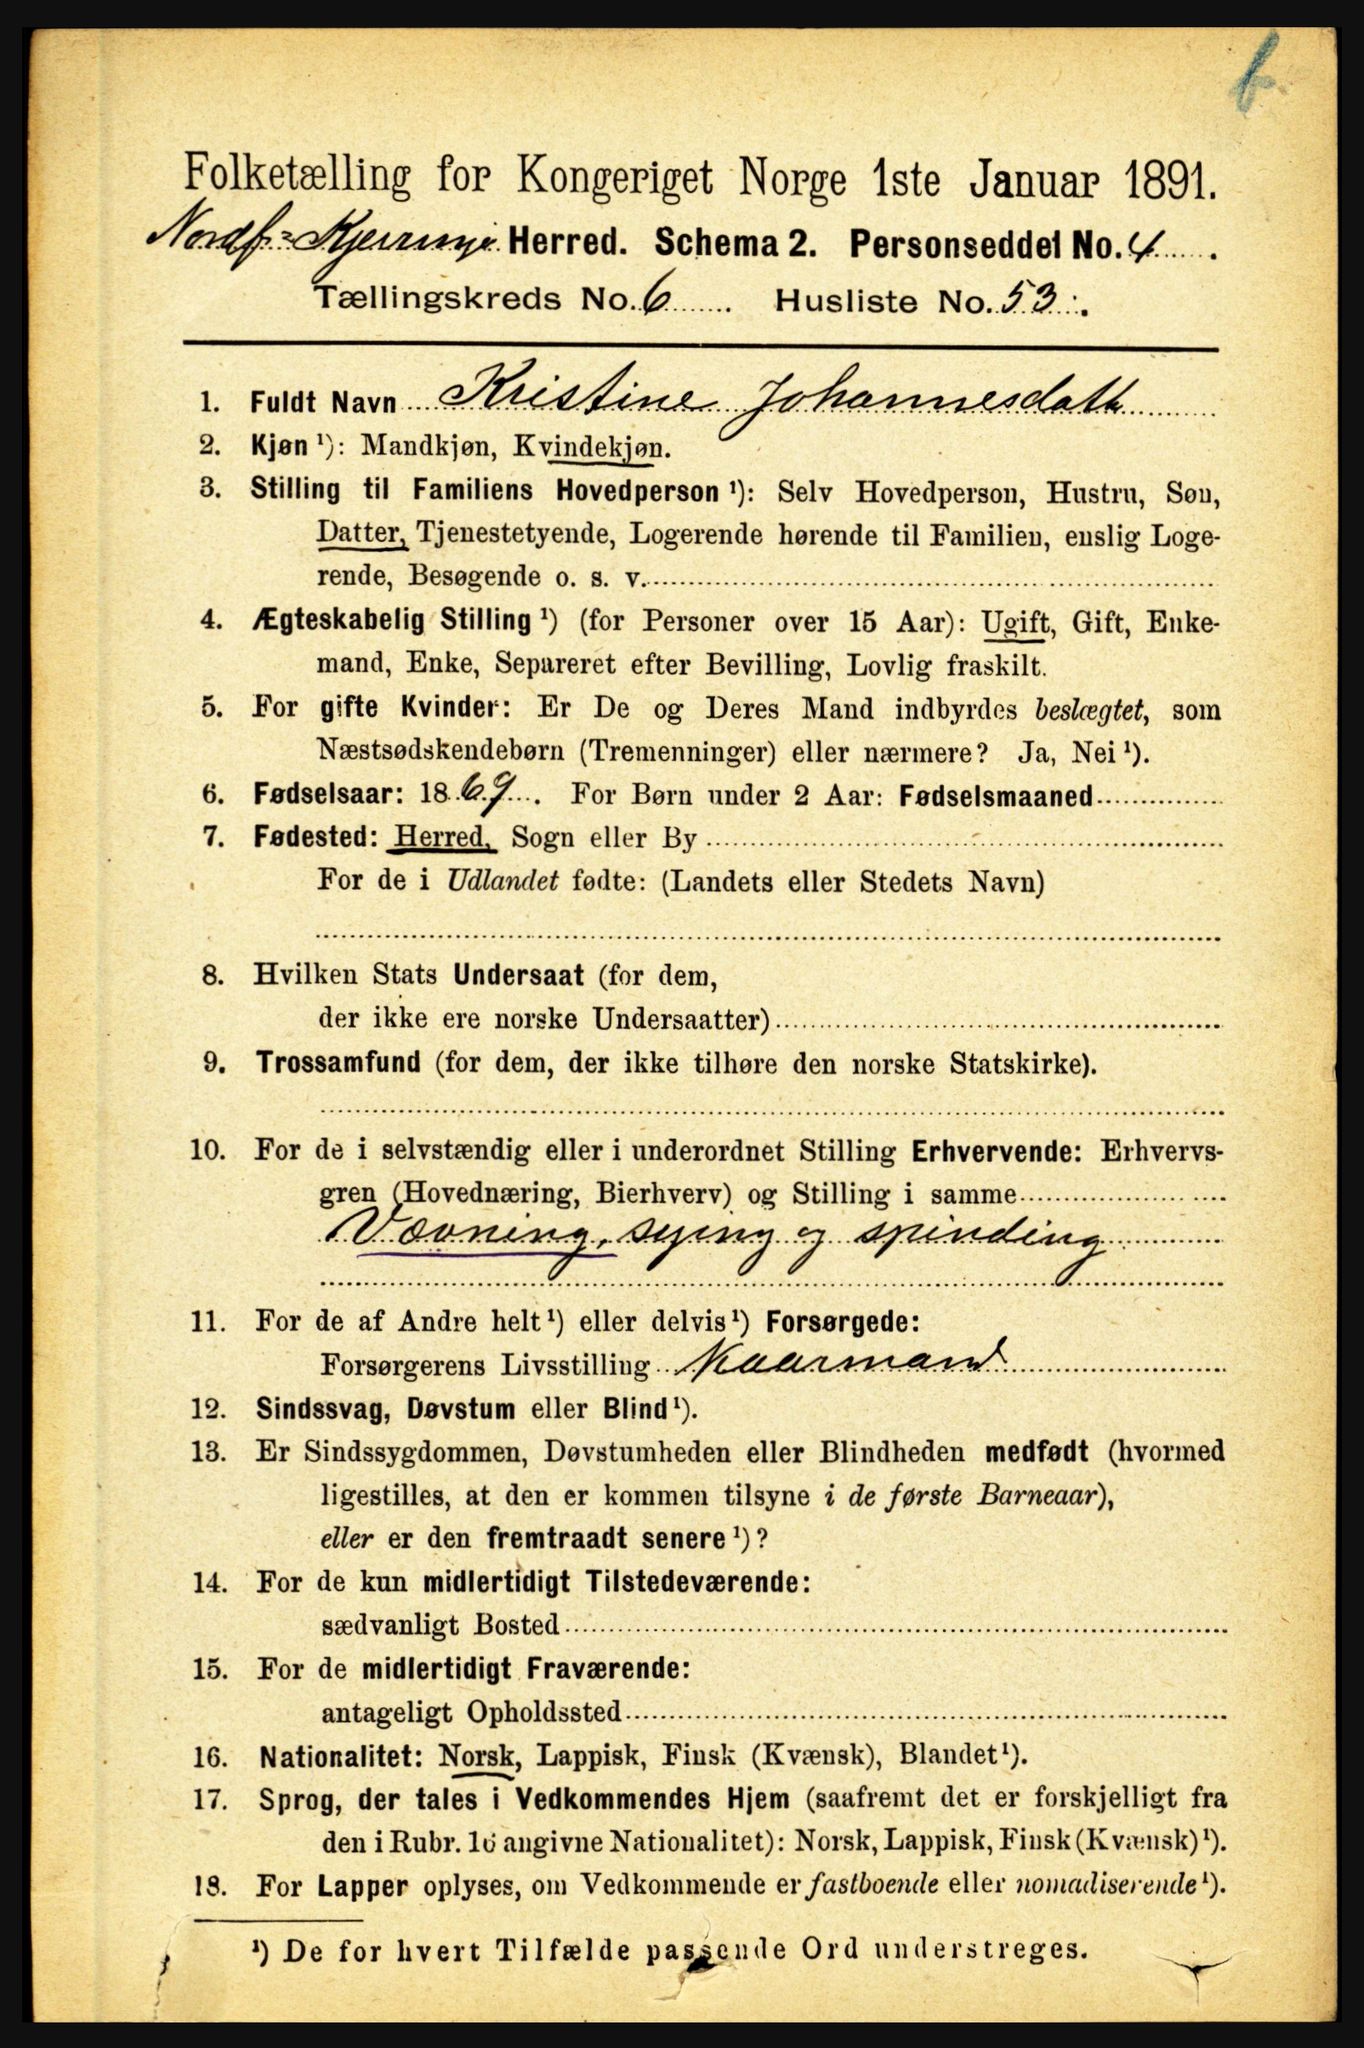 Folketælling for Kongeriget Norge 1ste Januar 1891.
Nordf.=Kjerringø Herred. Schema 2. Personseddel No. 4
Tællingskreds No. 6. Husliste No. 53.
1. Fuldt Navn Kristine Johannesdatt
2. Kjøn ¹): Mandkjøn, Kvindekjøn.
3. Stilling til Familiens Hovedperson ¹): Selv Hovedperson, Hustru, Søn,
Datter, Tjenestetyende, Logerende hørende til Familien, enslig Loge-
rende, Besøgende o. s. v.
4. Ægteskabelig Stilling ¹) (for Personer over 15 Aar): Ugift, Gift, Enke-
mand, Enke, Separeret efter Bevilling, Lovlig fraskilt.
5. For gifte Kvinder: Er De og Deres Mand indbyrdes beslægtet, som
Næstsødskendebørn (Tremenninger) eller nærmere? Ja, Nei ¹).
6. Fødselsaar: 1869. For Børn under 2 Aar: Fødselsmaaned
7. Fødested: Herred, Sogn eller By
For de i Udlandet fødte: (Landets eller Stedets Navn)
8. Hvilken Stats Undersaat (for dem,
der ikke ere norske Undersaatter)
9. Trossamfund (for dem, der ikke tilhøre den norske Statskirke).
10. For de i selvstændig eller i underordnet Stilling Erhvervende: Erhvervs-
gren (Hovednæring, Bierhverv) og Stilling i samme
Vævning, sying og spinding
11. For de af Andre helt ¹) eller delvis ¹) Forsørgede:
Forsørgerens Livsstilling Kaarmand
12. Sindssvag, Døvstum eller Blind ¹).
13. Er Sindssygdommen, Døvstumheden eller Blindheden medfødt (hvormed
ligestilles, at den er kommen tilsyne i de første Barneaar),
eller er den fremtraadt senere ¹)?
14. For de kun midlertidigt Tilstedeværende:
sædvanligt Bosted
15. For de midlertidigt Fraværende:
antageligt Opholdssted
16. Nationalitet: Norsk, Lappisk, Finsk (Kvænsk), Blandet ¹).
17. Sprog, der tales i Vedkommendes Hjem (saafremt det er forskjelligt fra
den i Rubr. 16 angivne Nationalitet): Norsk, Lappisk, Finsk (Kvænsk) ¹).
18. For Lapper oplyses, om Vedkommende er fastboende eller nomadiserende ¹).
¹) De for hvert Tilfælde passende Ord understreges.